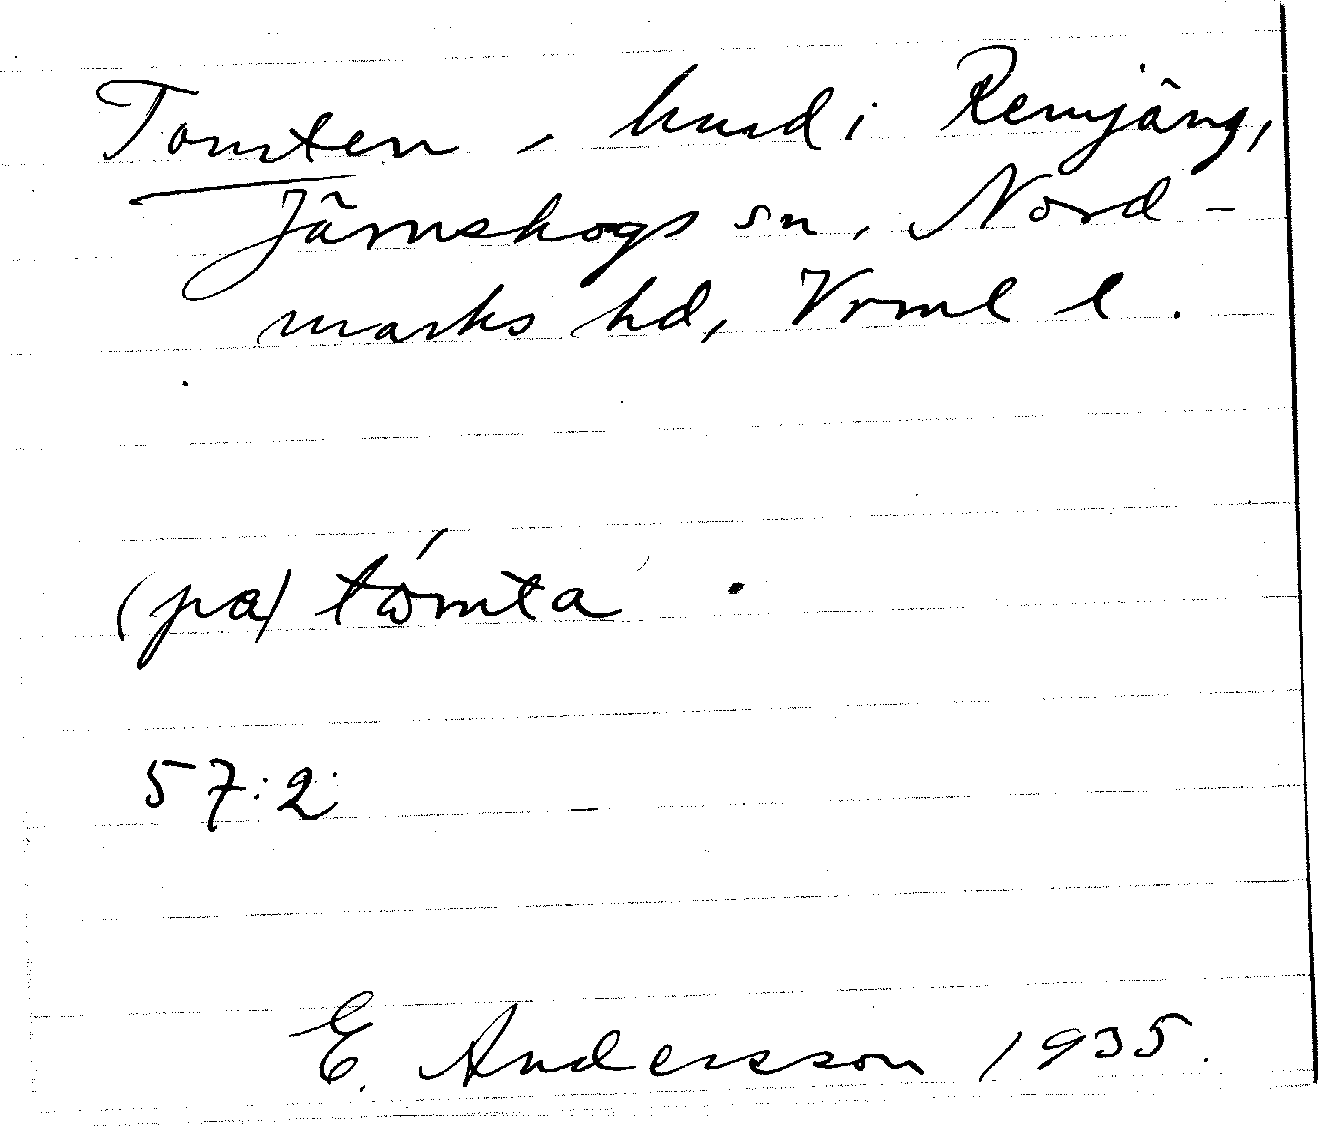 Tomten, hmd i Remjäng,
Järnskogs sn, Nord-
marks hd, Vrml l.
(pa) tómta
57:2
E. Andersson 1935.